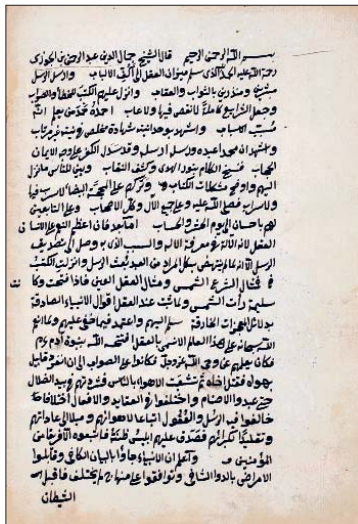 بسم الله الرحمن الرحيم قال الشيخ جمال الدين عبد الرحمن بن الجوزي
رحمة الله عليه الحمد لله الذي سلم ميزان العقل الى أكف الالباب وارسل الرسل
مبشرين ومنذرين بالثواب والعقاب وانزل عليهم الكتب للخطأ والصواب
وجعل الشرايع كاملة لا نقص فيها ولا عاب احمده حمد من يعلم انه
مسبب الاسباب واشهد بوحدانيته شهادة مخلص في نيته غير مرتاب
واشهد ان محمدا عبده ورسوله ارسله وقد سدل الكفر على وجه الايمان
الحجاب فنسخ الظلام بنور الهدى وكشف النقاب وبين للناس ما نزل
اليهم واوضح مشكلات الكتاب وتركهم على المحجة البيضا لا سرب فيها
ولا سراب فصلى الله عليه وعلى جميع الآل وكل الاصحاب وعلى التابعين
لهم باحسان الى يوم الحشر والحساب اما بعد فان اعظم النعم على الانسان
العقل لانه الآلة في معرفة الاله والسبب الذي به وصل الى تصديق
الرسل الا انه لما لم ينهض بكل المراد من العبد بعثت الرسل وانزلت الكتب
فمثال الشرع الشمس ومثال العقل العين فاذا فتحت وكانت
سليمة رأت الشمس ولما ثبت عند العقل اقوال الانبياء الصادقة
بدلائل المعجزات الخارقة سلم اليهم واعتمد فيما خفي عليهم ولما انعم
الله سبحانه على هذا العالم الانسي بالعقل افتتحه الله بنبوة ادم
فكان يعلمهم عن وحي الله عز وجل فكانوا على الصواب الى ان انفرد قابيل
بهواه فقتل اخاه ثم تشعبت الاهواء بالناس فشردتهم في بيد الضلال
حتى عبدوا الاصنام واختلفوا في العقايد والافعال اختلافا
خالفوا فيه الرسل والعقول اتباعا لاهوائهم وميلا الى عاداتهم
وتقليدا لكبرائهم فصدق عليهم ابليس ظنه فاتبعوه الا فريقا من
المؤمنين واعلم ان الانبياء جاؤا بالبيان الكافي وقابلوا
الامراض بالدوا الشافي وتوافقوا على منهاج لم يختلف فاقبل
الشيطان